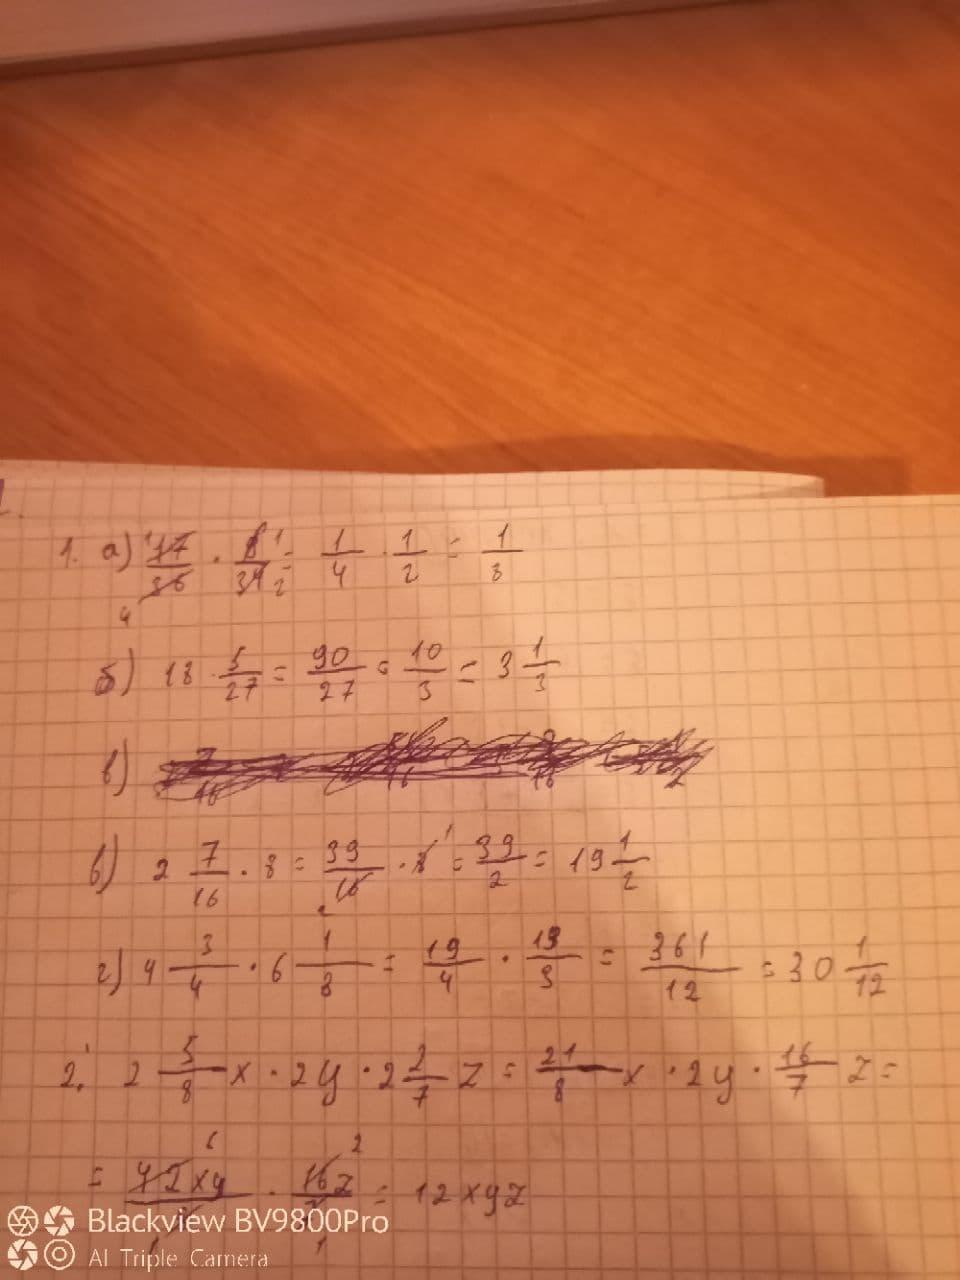 1. а) 17/36 · 8/34 = 1/4 · 1/2 = 1/3
б) 18 · 5/27 = 90/27 = 10/3 = 3 1/3
в)
в) 2 7/16 · 8 = 39/16 · 8 = 39/2 = 19 1/2
г) 4 3/4 · 6 1/3 = 19/4 · 19/3 = 361/12 = 30 1/12
2. 2 5/8 x · 2y · 2 2/7 z = 21/8 x · 2y · 16/7 z =
= 42xy/8 · 16z/7 = 12xyz
Blackview BV9800Pro
AI Triple Camera